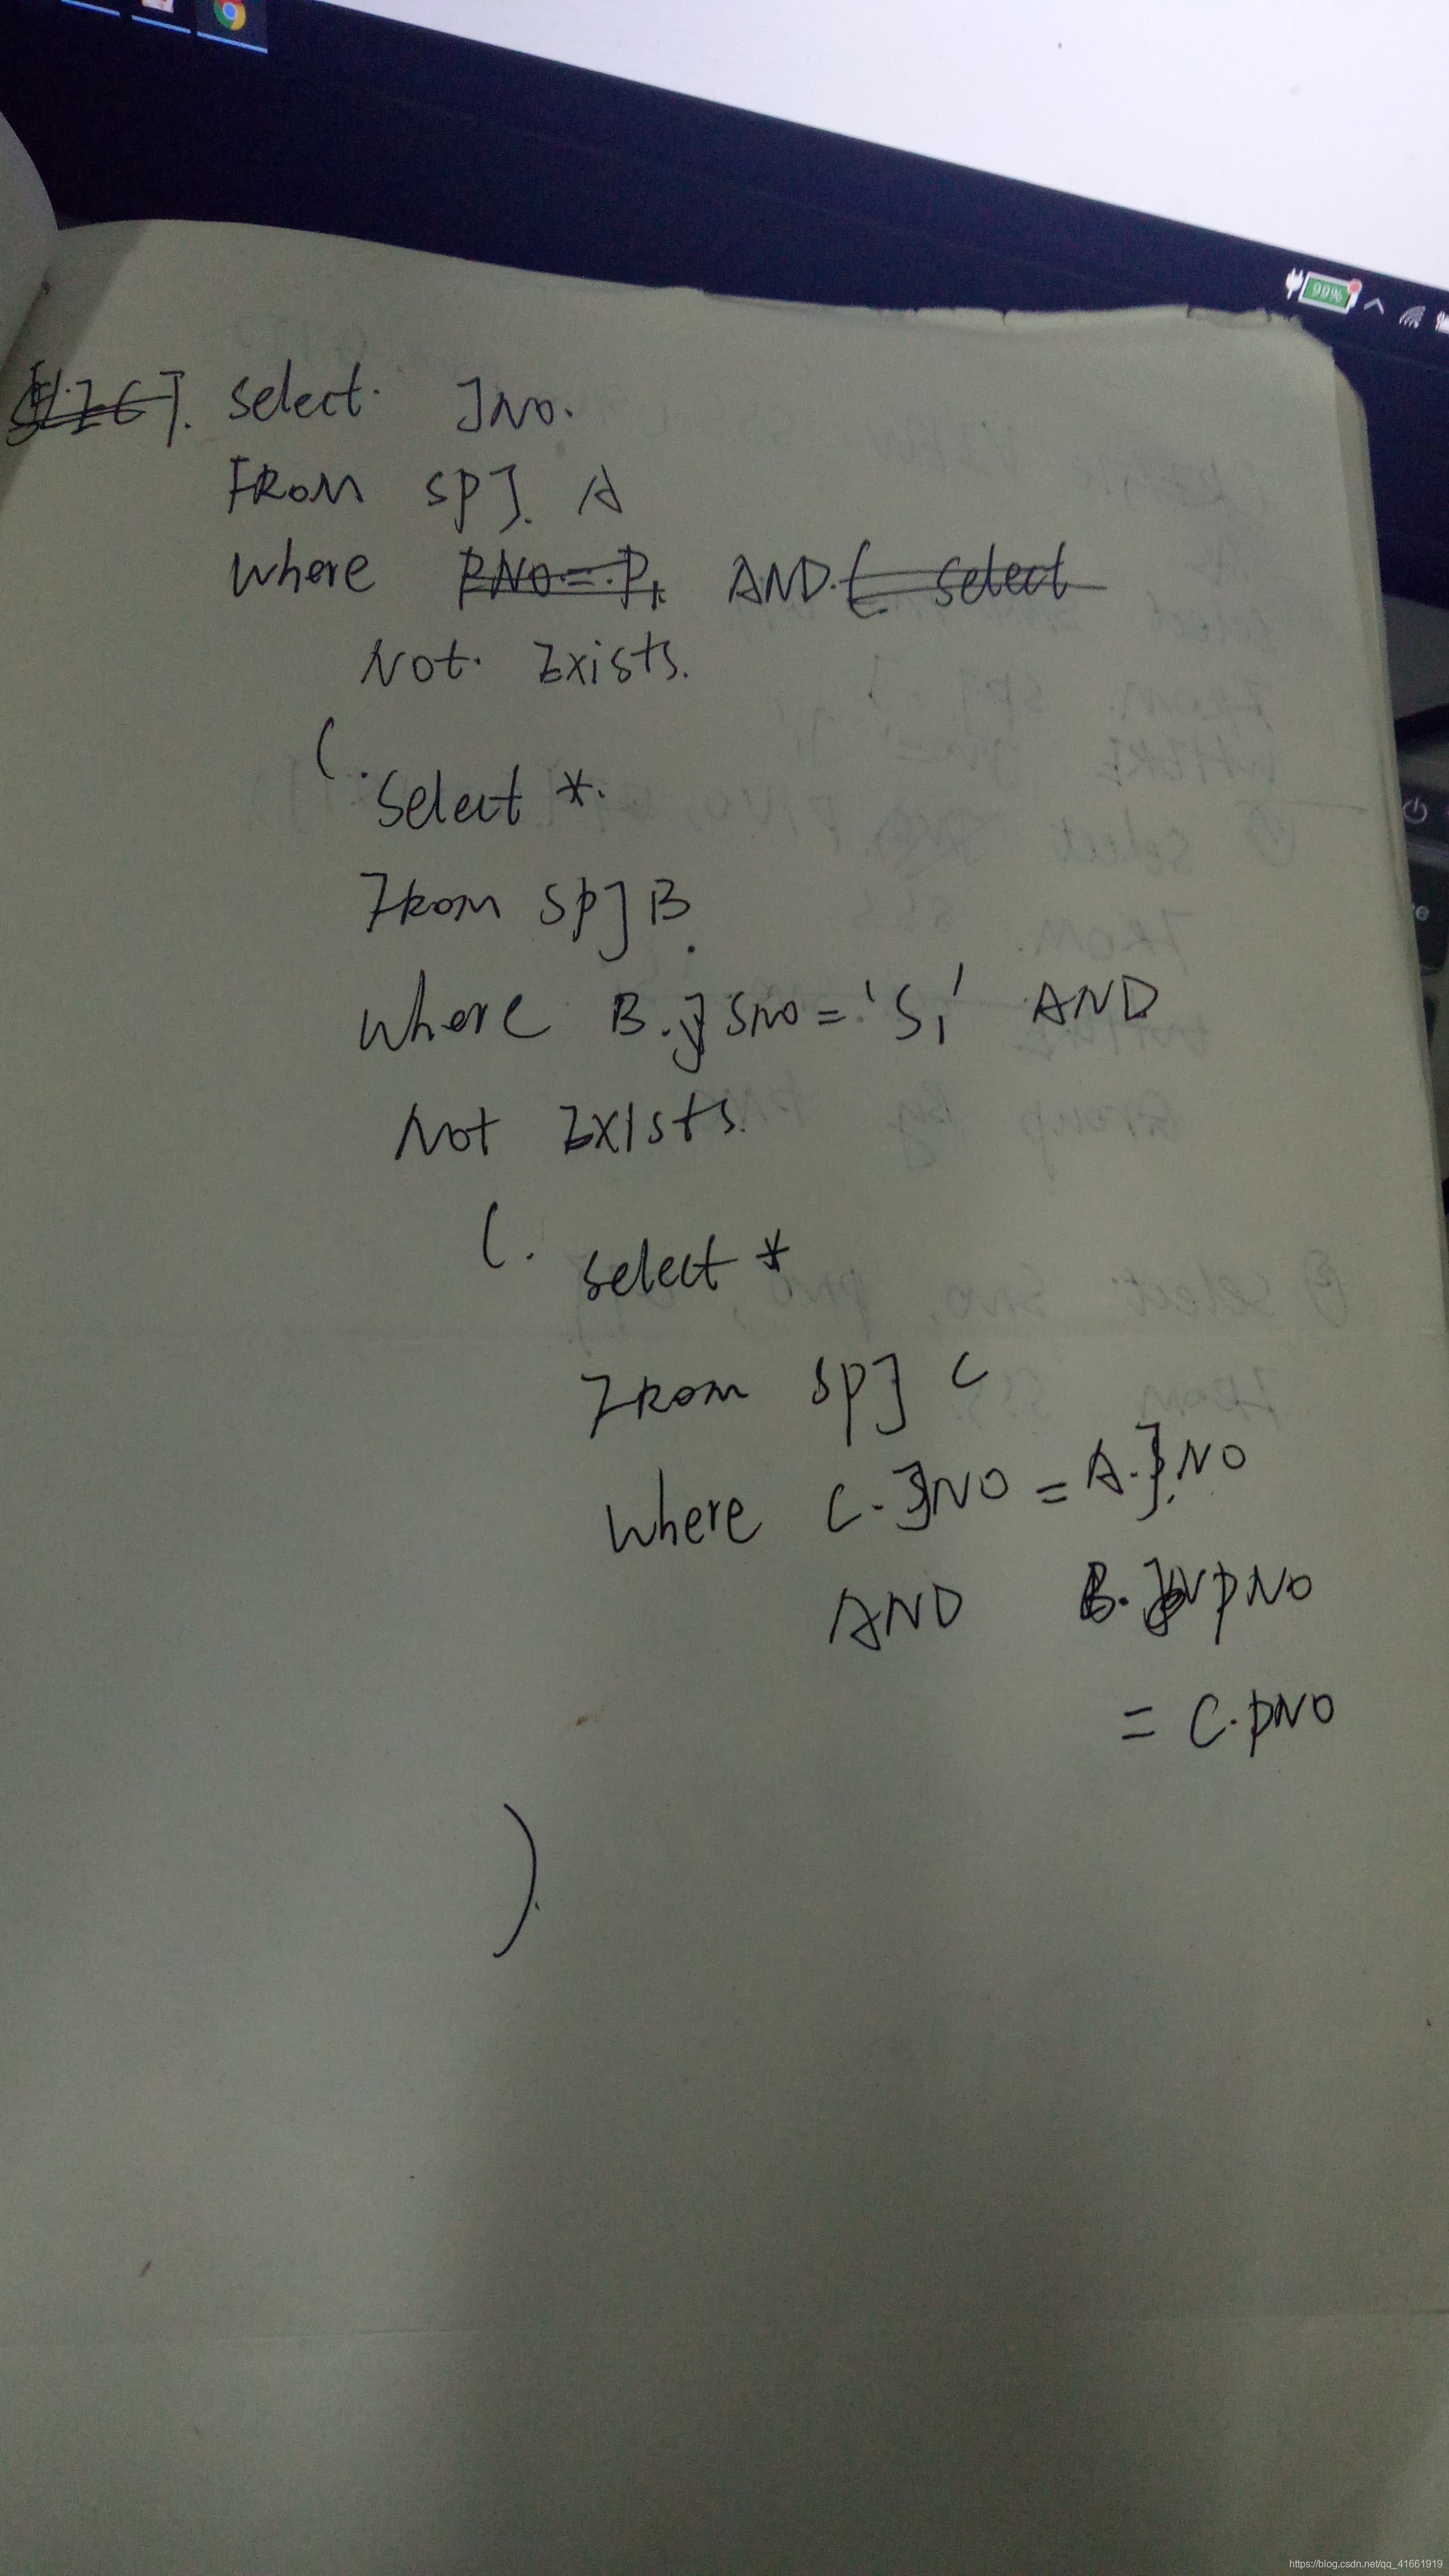 99%
select. JNO.
FROM SPJ. A
where PNO = P1 AND ( select
Not. Exists.
(.
select *.
FROM SPJ B.
where B. SNO = 'S1' AND
Not Exists.
(.
select *
FROM SPJ C
where C. JNO = A. JNO
AND B. PNO
= C. PNO
).
https://blog.csdn.net/qq_41661919